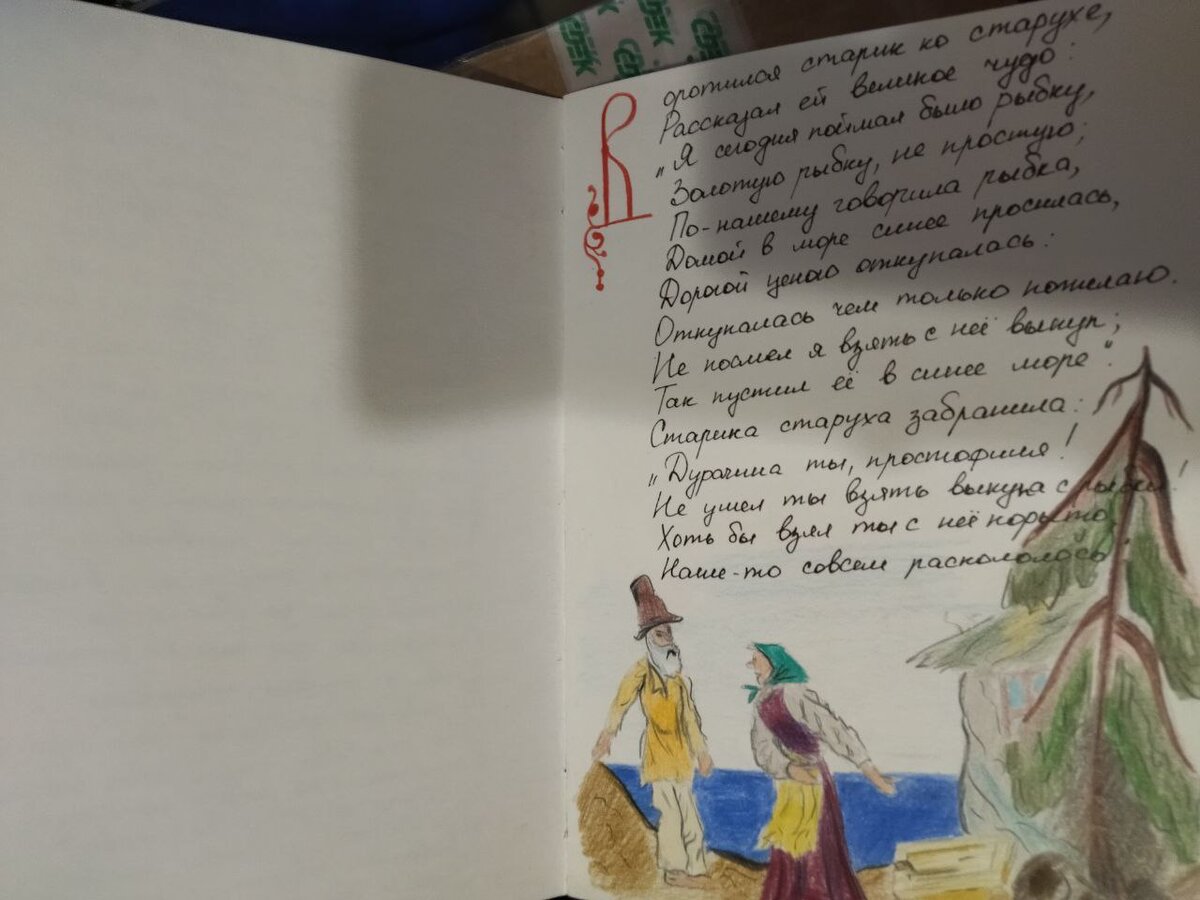 СДЭК
СДЭК
СДЭК
Воротился старик ко старухе,
Рассказал ей великое чудо:
"Я сегодня поймал было рыбку,
Золотую рыбку, не простую;
По-нашему говорила рыбка,
Домой в море синее просилась,
Дорогой ценою откупалась:
Откупалась чем только пожелаю.
Не посмел я взять с неё выкуп;
Так пустил её в синее море".
Старика старуха забранила:
"Дурачина ты, простофиля!
Не умел ты взять выкупа с рыбки!
Хоть бы взял ты с неё корыто,
Наше-то совсем раскололось".